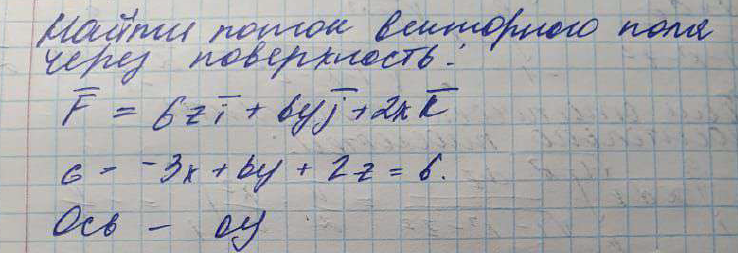 Найти поток векторного поля
через поверхность:
F̅ = 6z i̅ + 6y j̅ + 2x k̅
σ - -3x + 6y + 2z = 6.
Ось - oy